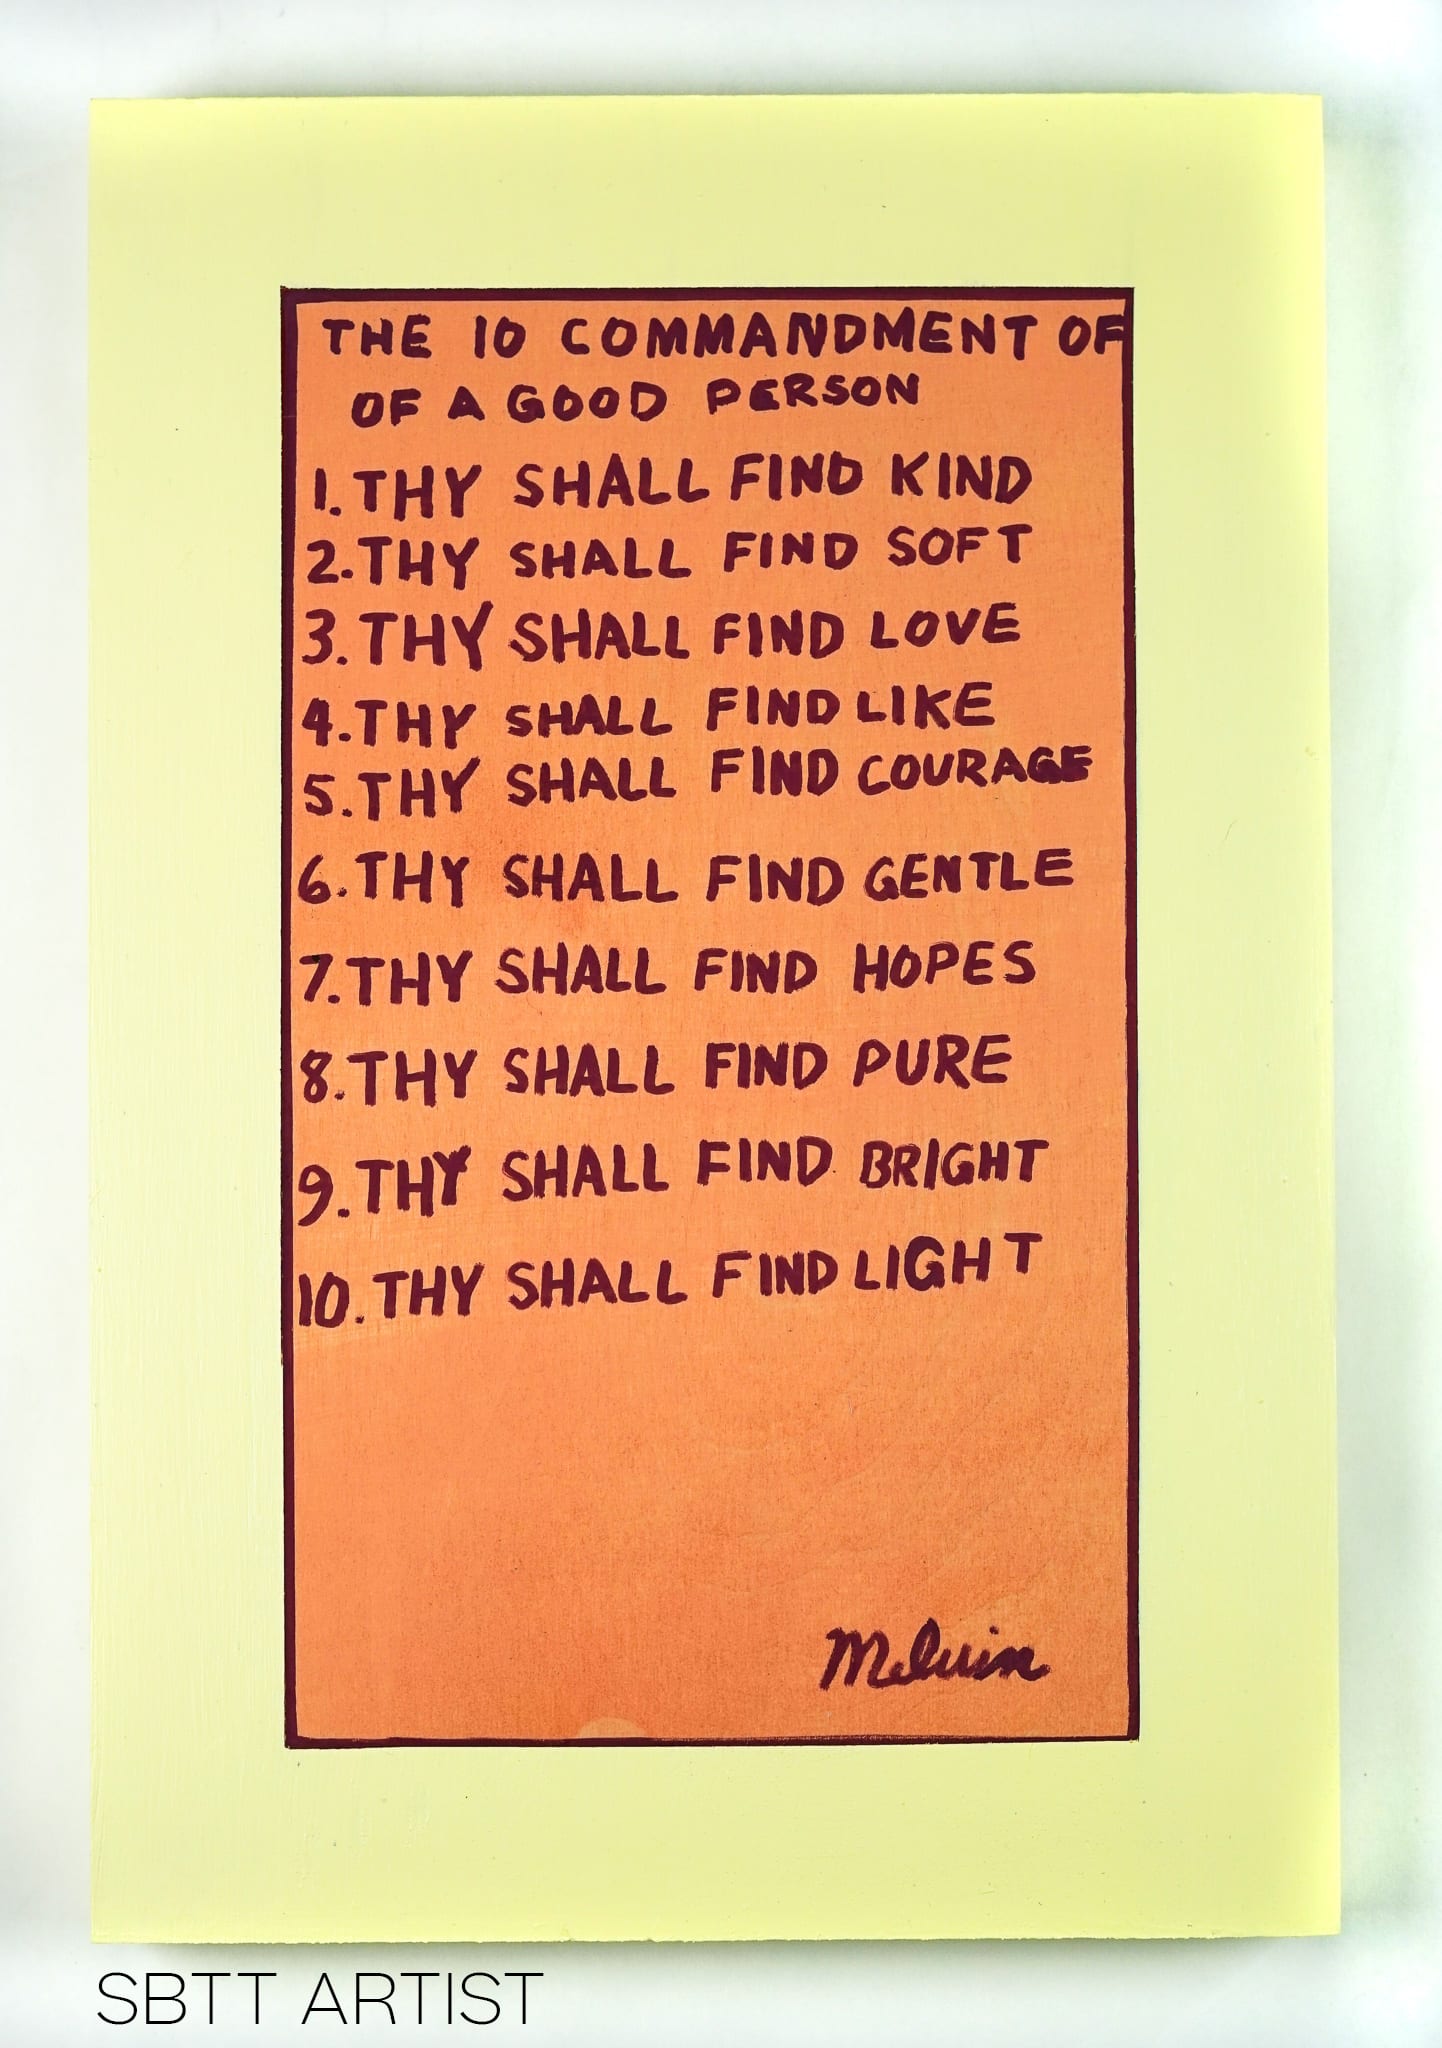 THE 10 COMMANDMENT OF
OF A GOOD PERSON
1. THY SHALL FIND KIND
2. THY SHALL FIND SOFT
3. THY SHALL FIND LOVE
4. THY SHALL FIND LIKE
5. THY SHALL FIND COURAGE
6. THY SHALL FIND GENTLE
7. THY SHALL FIND HOPES
8. THY SHALL FIND PURE
9. THY SHALL FIND BRIGHT
10. THY SHALL FIND LIGHT
Melvin
SBTT ARTIST